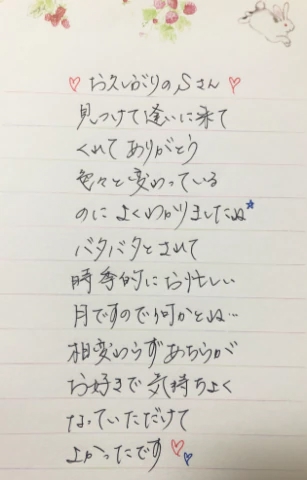 ♡ お久しぶりのSさん ♡
見つけて逢いに来て
くれてありがとう
色々と変わっている
のによくわかりましたね☆
バタバタとされて
時季的にお忙しい
月ですので何かとね…
相変わらずあちらが
お好きで気持ちよく
なっていただけて
よかったです♡♡